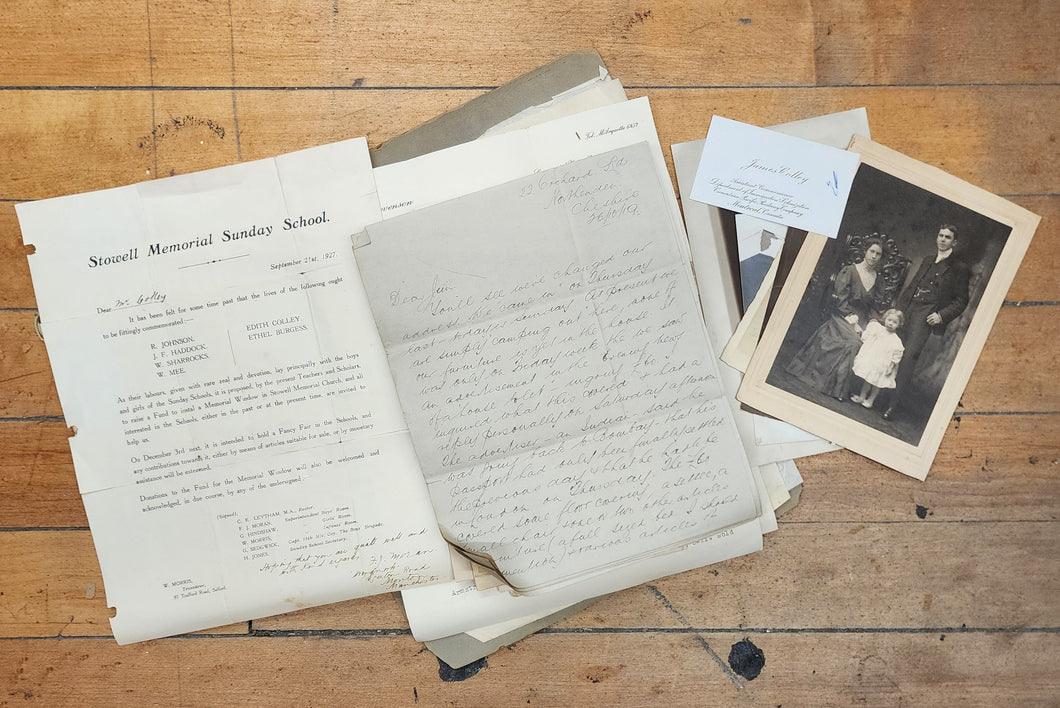 Stowell Memorial Sunday School.
September 21st, 1927.
Dear Mr Colley
It has been felt for some time past that the lives of the following ought
to be fittingly commemorated:—
R. JOHNSON.
J. F. HADDOCK.
W. SHARROCKS.
W. MEE.
EDITH COLLEY.
ETHEL BURGESS.
As their labours, given with rare zeal and devotion, lay principally with the boys
and girls of the Sunday Schools, it is proposed, by the present Teachers and Scholars,
to raise a Fund to instal a Memorial Window in Stowell Memorial Church, and all
interested in the Schools, either in the past or at the present time, are invited to
help us.
On December 3rd next, it is intended to hold a Fancy Fair in the Schools, and
any contributions towards it, either by means of articles suitable for sale, or by monetary
assistance will be esteemed.
Donations to the Fund for the Memorial Window will also be welcomed and
acknowledged, in due course, by any of the undersigned:
(Signed), C. E. LEVTHAM, M.A., Rector.
F. J. MORAN, Superintendent Boys' Room.
G. HINDSHAW, " Girls' Room.
W. MORRIS, " Infants' Room.
G. SEDGWICK, Capt. Boys Brigade.
H. JONES, Sunday School Secretary.
Hoping that you are quite well and
with kind regards. F. J. Moran
Road
Manchester
W. MORRIS,
Treasurer,
97 Trafford Road, Salford.
Tel. McLoyette 6457
venson
22 Orchard Rd
Northenden
Cheshire
26/10/19.
Dear Jim
You'll see we've changed our
address. We came in on Thursday
last & today is Sunday. At present we
are simply camping out here, none of
our furniture is yet in the house. It
was only on Friday week that we saw
an advertisement in the Evening News
"of a house to let - inquiry £60". I
inquired what this covered & had a
reply personally on Saturday afternoon.
The advertiser, an Indian said he
was going back to Bombay - that his
passport had only been finally settled
the previous day, & that he had to be
in London on Thursday. The £60
covered some floor covering, a settee, a
small chair, & one or two other articles
of furniture (a full sized bed I should
mention) & various articles
sold
James Colley
Assistant Commissioner
Department of Immigration & Colonization
Canadian Pacific Railway Company
Montreal, Canada